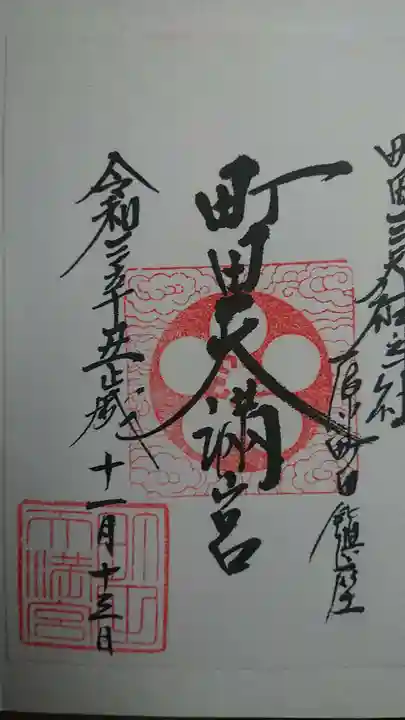 町田三天神之社
原町田鎮座
町田天満宮
令和三辛丑歳
十一月十三日
町田天満宮